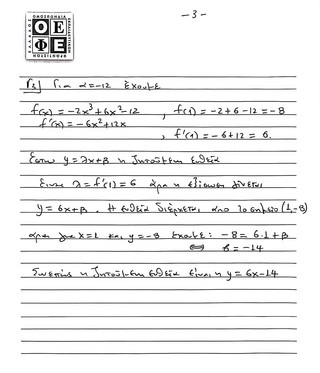 -3-
ΟΕ
ΦΕ
Γ3) Για α=-12 έχουμε
f(x) = -2x³+6x²-12 , f(1) = -2+6-12=-8
f'(x) = -6x²+12x , f'(1) = -6+12 = 6.
Έστω y=λx+β η ζητούμενη ευθεία
Είναι λ=f'(1)=6 άρα η εξίσωση γίνεται
y=6x+β. Η ευθεία διέρχεται από το σημείο (1,-8)
άρα για x=1 και y=-8 έχουμε: -8=6·1+β
⇔ β=-14
Συνεπώς η ζητούμενη ευθεία είναι η y=6x-14